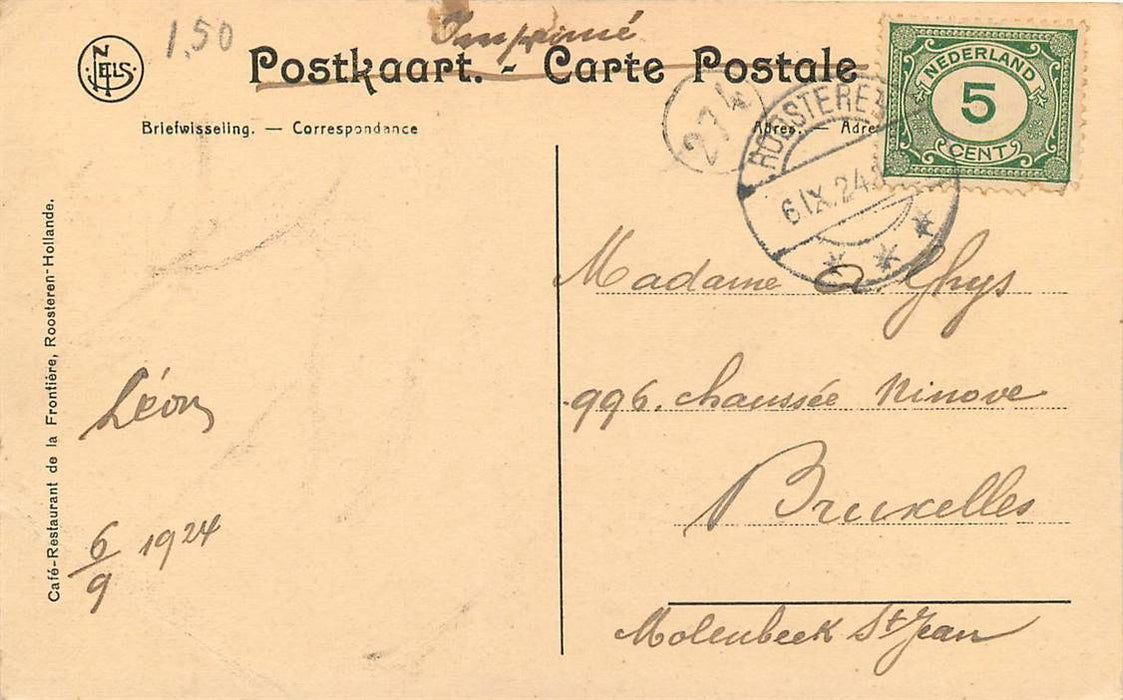 1.50
Imprimé
NELS
Postkaart. - Carte Postale
NEDERLAND
5
CENT
274
Briefwisseling. — Correspondance
Adres. — Adre
ROOSTERE
6 IX.24.
Madame A. Ghys
996. chaussée Ninove
Bruxelles
Molenbeek St Jean
Léon
6/9 1924
Café-Restaurant de la Frontière, Roosteren-Hollande.